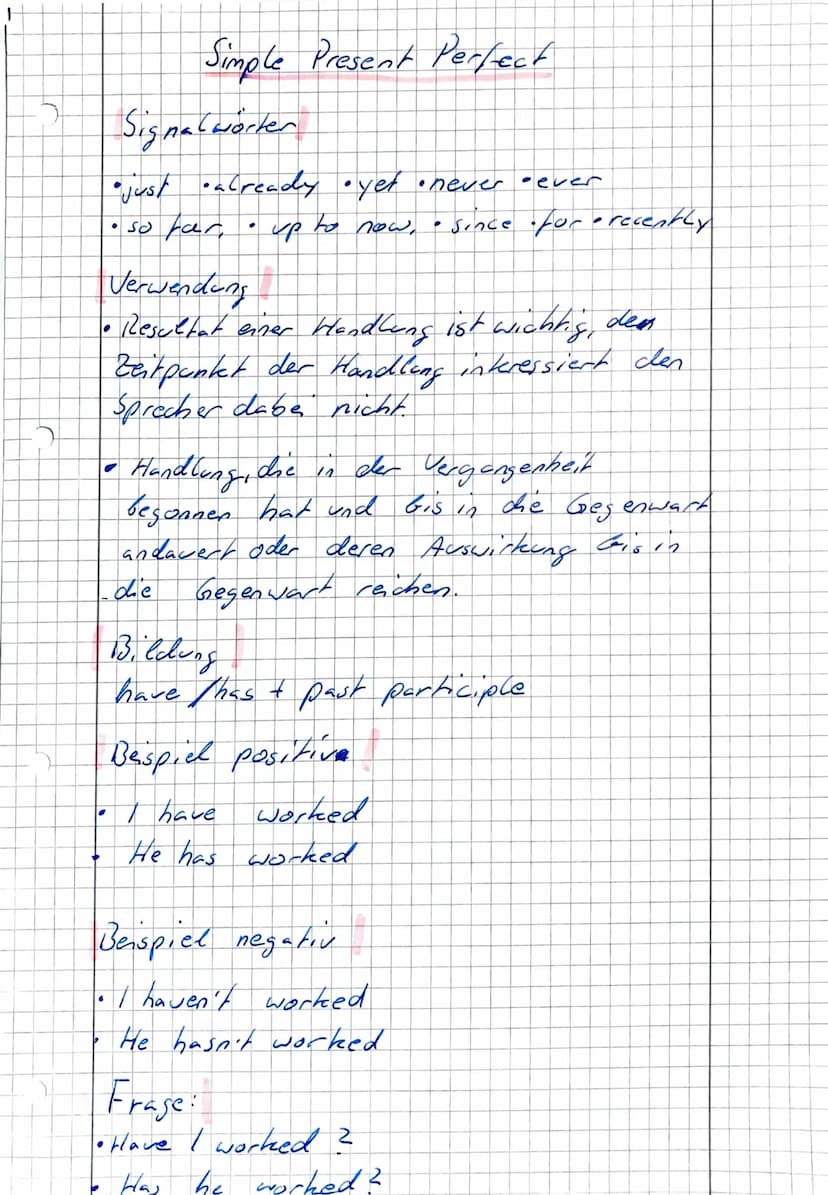 Simple Present Perfect
Signalwörter
• just • already • yet • never • ever
• so far, • up to now, • since • for • recently
Verwendung
• Resultat einer Handlung ist wichtig, den
Zeitpunkt der Handlung interessiert den
Sprecher dabei nicht.
• Handlung, die in der Vergangenheit
begonnen hat und bis in die Gegenwart
andauert oder deren Auswirkung bis in
die Gegenwart reichen.
Bildung
have/has + past participle
Beispiel positiv
• I have worked
• He has worked
Beispiel negativ
• I haven't worked
• He hasn't worked
Frage:
• Have I worked?
• Has he worked?